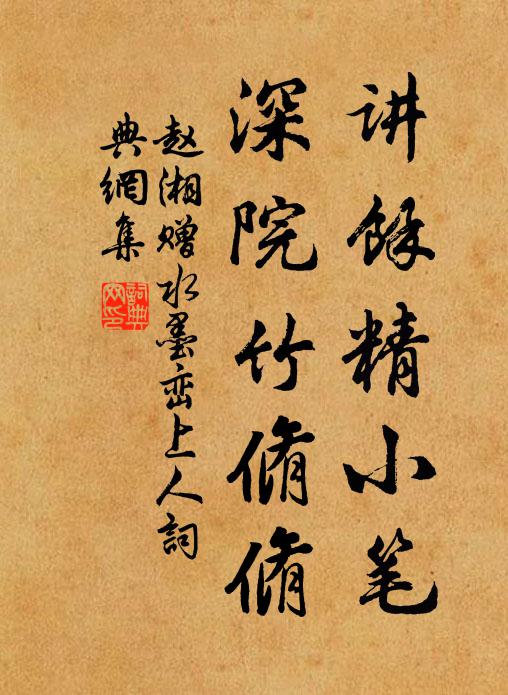 讲馀精小笔
深院竹脩脩
赵湘赠水墨峦上人词
典網集
詞典網印